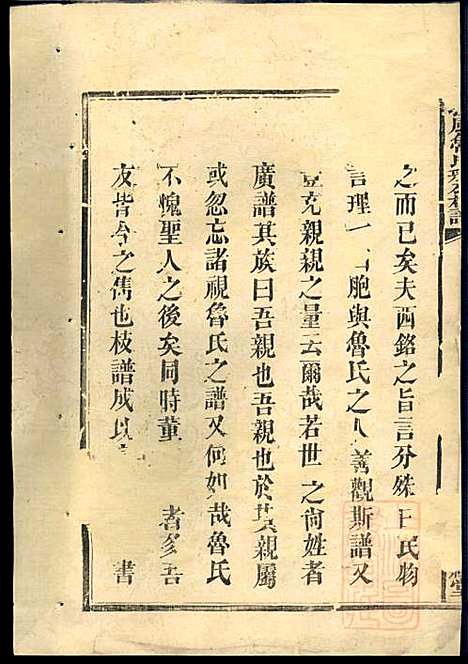 之而已矣夫西銘之旨言分殊曰民物
言理一曰胞與魯氏之人善觀斯譜又
豈充親親之量云爾哉若世之尚姓者
廣譜其族曰吾親也吾親也於其親屬
或忽忘諸視魯氏之譜又何如哉魯氏
不愧聖人之後矣同時董者多吾
友皆今之雋也枝譜成以書